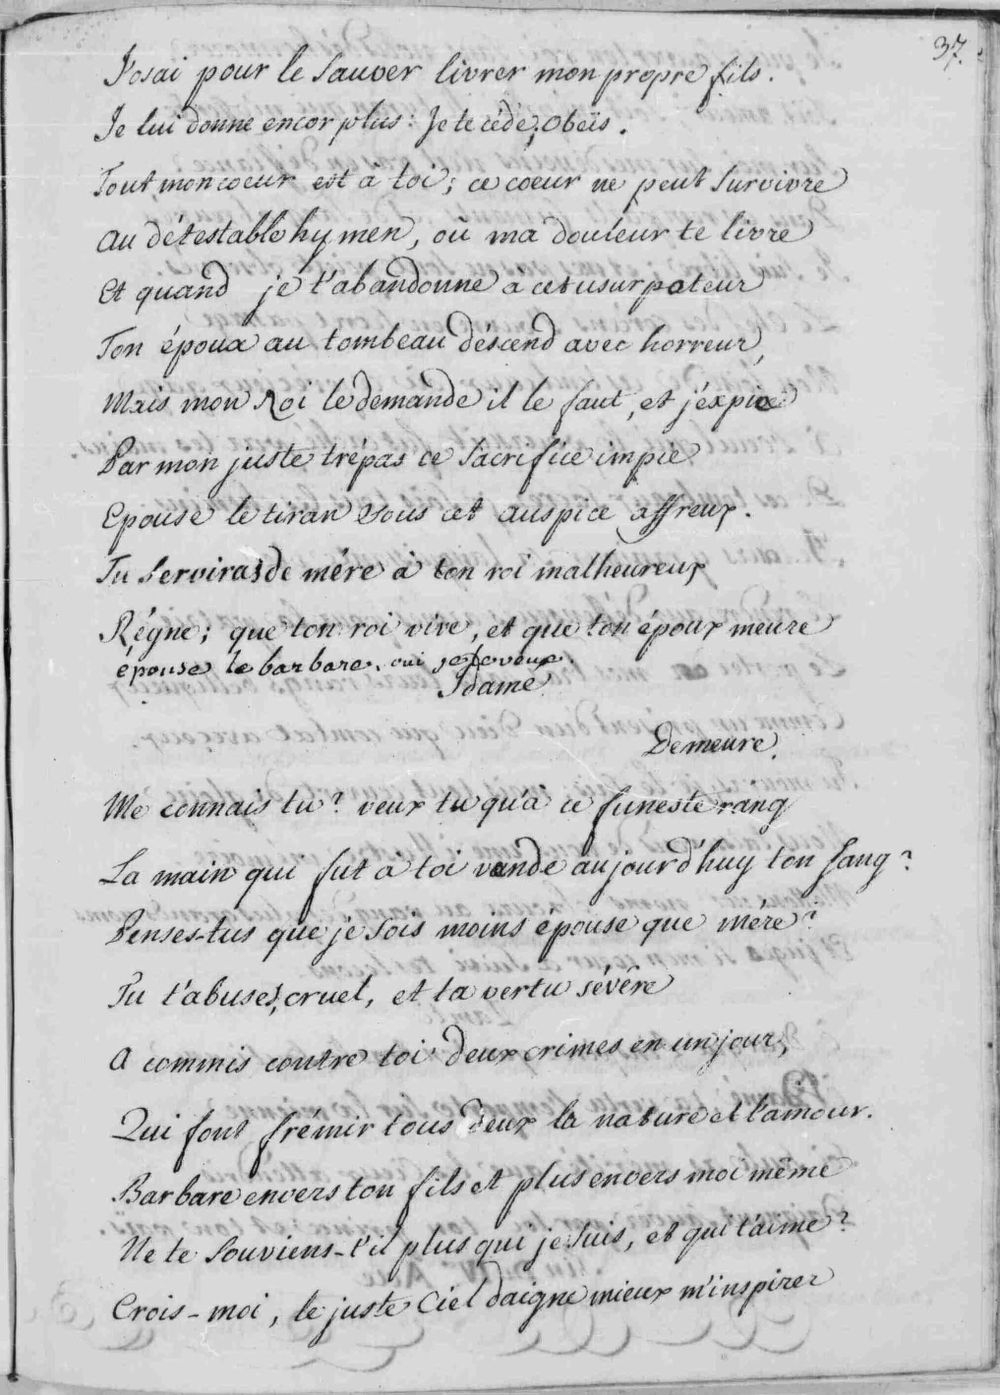 37.
J'osai pour le Sauver livrer mon propre fils.
Je lui donne encor plus: Je te céde; obéis.
Tout mon coeur est à toi; ce coeur ne peut survivre
Au détestable hymen, où ma douleur te livre
Et quand je t'abandonne à cet usurpateur
Ton époux au tombeau déscend avec horreur,
Mais mon Roi le demande il le faut, et j'éxpie
Par mon juste trépas ce sacrifice impie
Epouse le tiran sous cet auspice affreux.
Tu Serviras de mére à ton roi malheureux
Régne; que ton roi vive, et que ton époux meure
épouse le barbare. oui je le veux.
Idamé
Demeure.
Me connais tu? veux tu qu'à ce funeste rang
La main qui fut à toi vende aujourd'huy ton sang?
Penses-tus que je sois moins épouse que mére?
Tu t'abuses, cruel, et ta vertu sévére
A commis contre toi deux crimes en un jour,
Qui font frémir tous deux la nature et l'amour.
Barbare envers ton fils et plus envers moi même
Ne te Souviens-t'il plus qui je suis, et qui t'aime?
Crois-moi, le juste Ciel daigne mieux m'inspirer